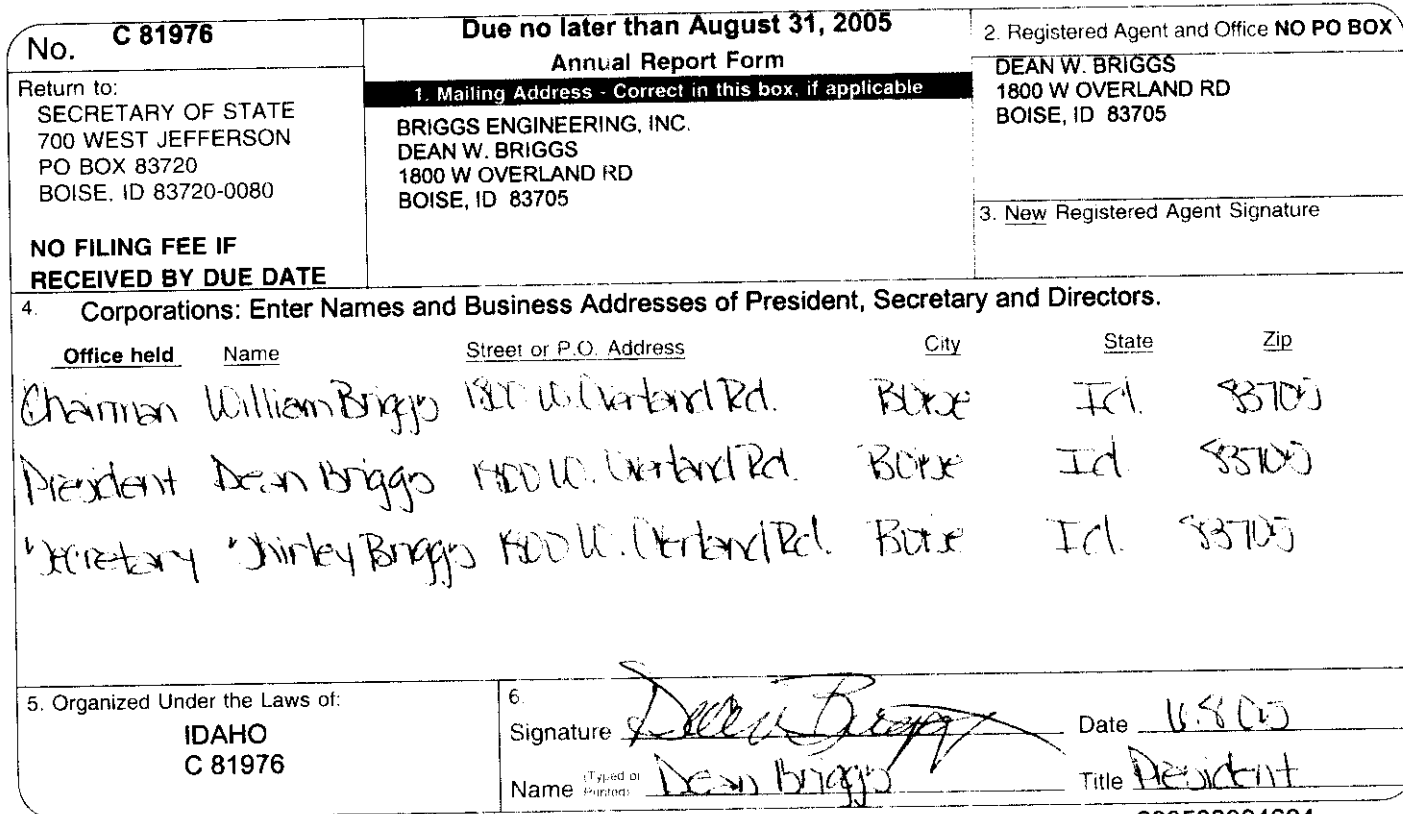 No. C 81976
Return to:
SECRETARY OF STATE
700 WEST JEFFERSON
PO BOX 83720
BOISE, ID 83720-0080
NO FILING FEE IF
RECEIVED BY DUE DATE
Due no later than August 31, 2005
Annual Report Form
1. Mailing Address - Correct in this box, if applicable
BRIGGS ENGINEERING, INC.
DEAN W. BRIGGS
1800 W OVERLAND RD
BOISE, ID 83705
2. Registered Agent and Office NO PO BOX
DEAN W. BRIGGS
1800 W OVERLAND RD
BOISE, ID 83705
3. New Registered Agent Signature
4. Corporations: Enter Names and Business Addresses of President, Secretary and Directors.
Office held Name Street or P.O. Address City State Zip
Chairman William Briggs 1800 W. Overland Rd. Boise Id. 83705
President Dean Briggs 1800 W. Overland Rd. Boise Id. 83705
Secretary Shirley Briggs 1800 W. Overland Rd. Boise Id. 83705
5. Organized Under the Laws of:
IDAHO
C 81976
6.
Signature Dean Briggs Date
Name (Typed or Printed) Dean Briggs Title President